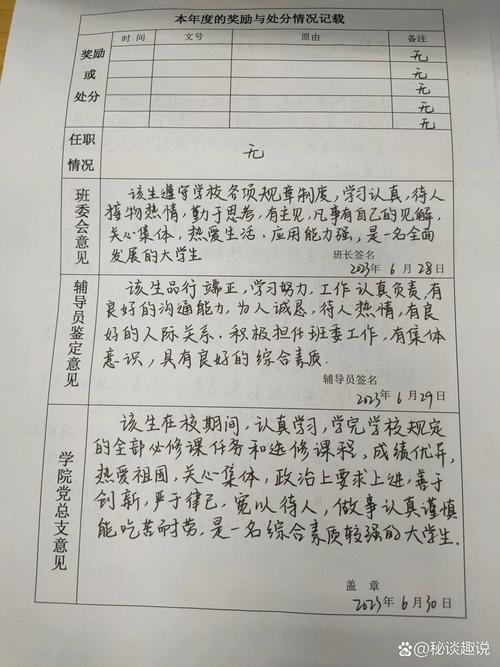 本年度的奖励与处分情况记载
时 间 文号 原由 备注
奖励
或
处分
无
无
无
无
无
任职
情况
无
班委会意见
该生遵守学校各项规章制度，学习认真，待人
接物热情，勤于思考，有主见，凡事有自己的见解，
关心集体，热爱生活、应用能力强，是一名全面
发展的大学生
班长签名
2023年 6 月 28日
辅导员鉴定意见
该生品行端正，学习努力，工作认真负责，有
良好的沟通能力，为人诚恳，待人热情，有良
好的人际关系．积极担任班委工作，有集体
意识，具有良好的综合素质．
辅导员签名
2023年 6 月29日
学院党总支意见
该生在校期间，认真学习，学完学校规定
的全部必修课任务和选修课程，成绩优异，
热爱祖国，关心集体，政治上要求上进，善于
创新，严于律己，宽以待人，做事认真谨慎
能吃苦而耐劳，是一名综合素质较强的大学生．
盖 章
2023年 6月30日
@秘谈趣说